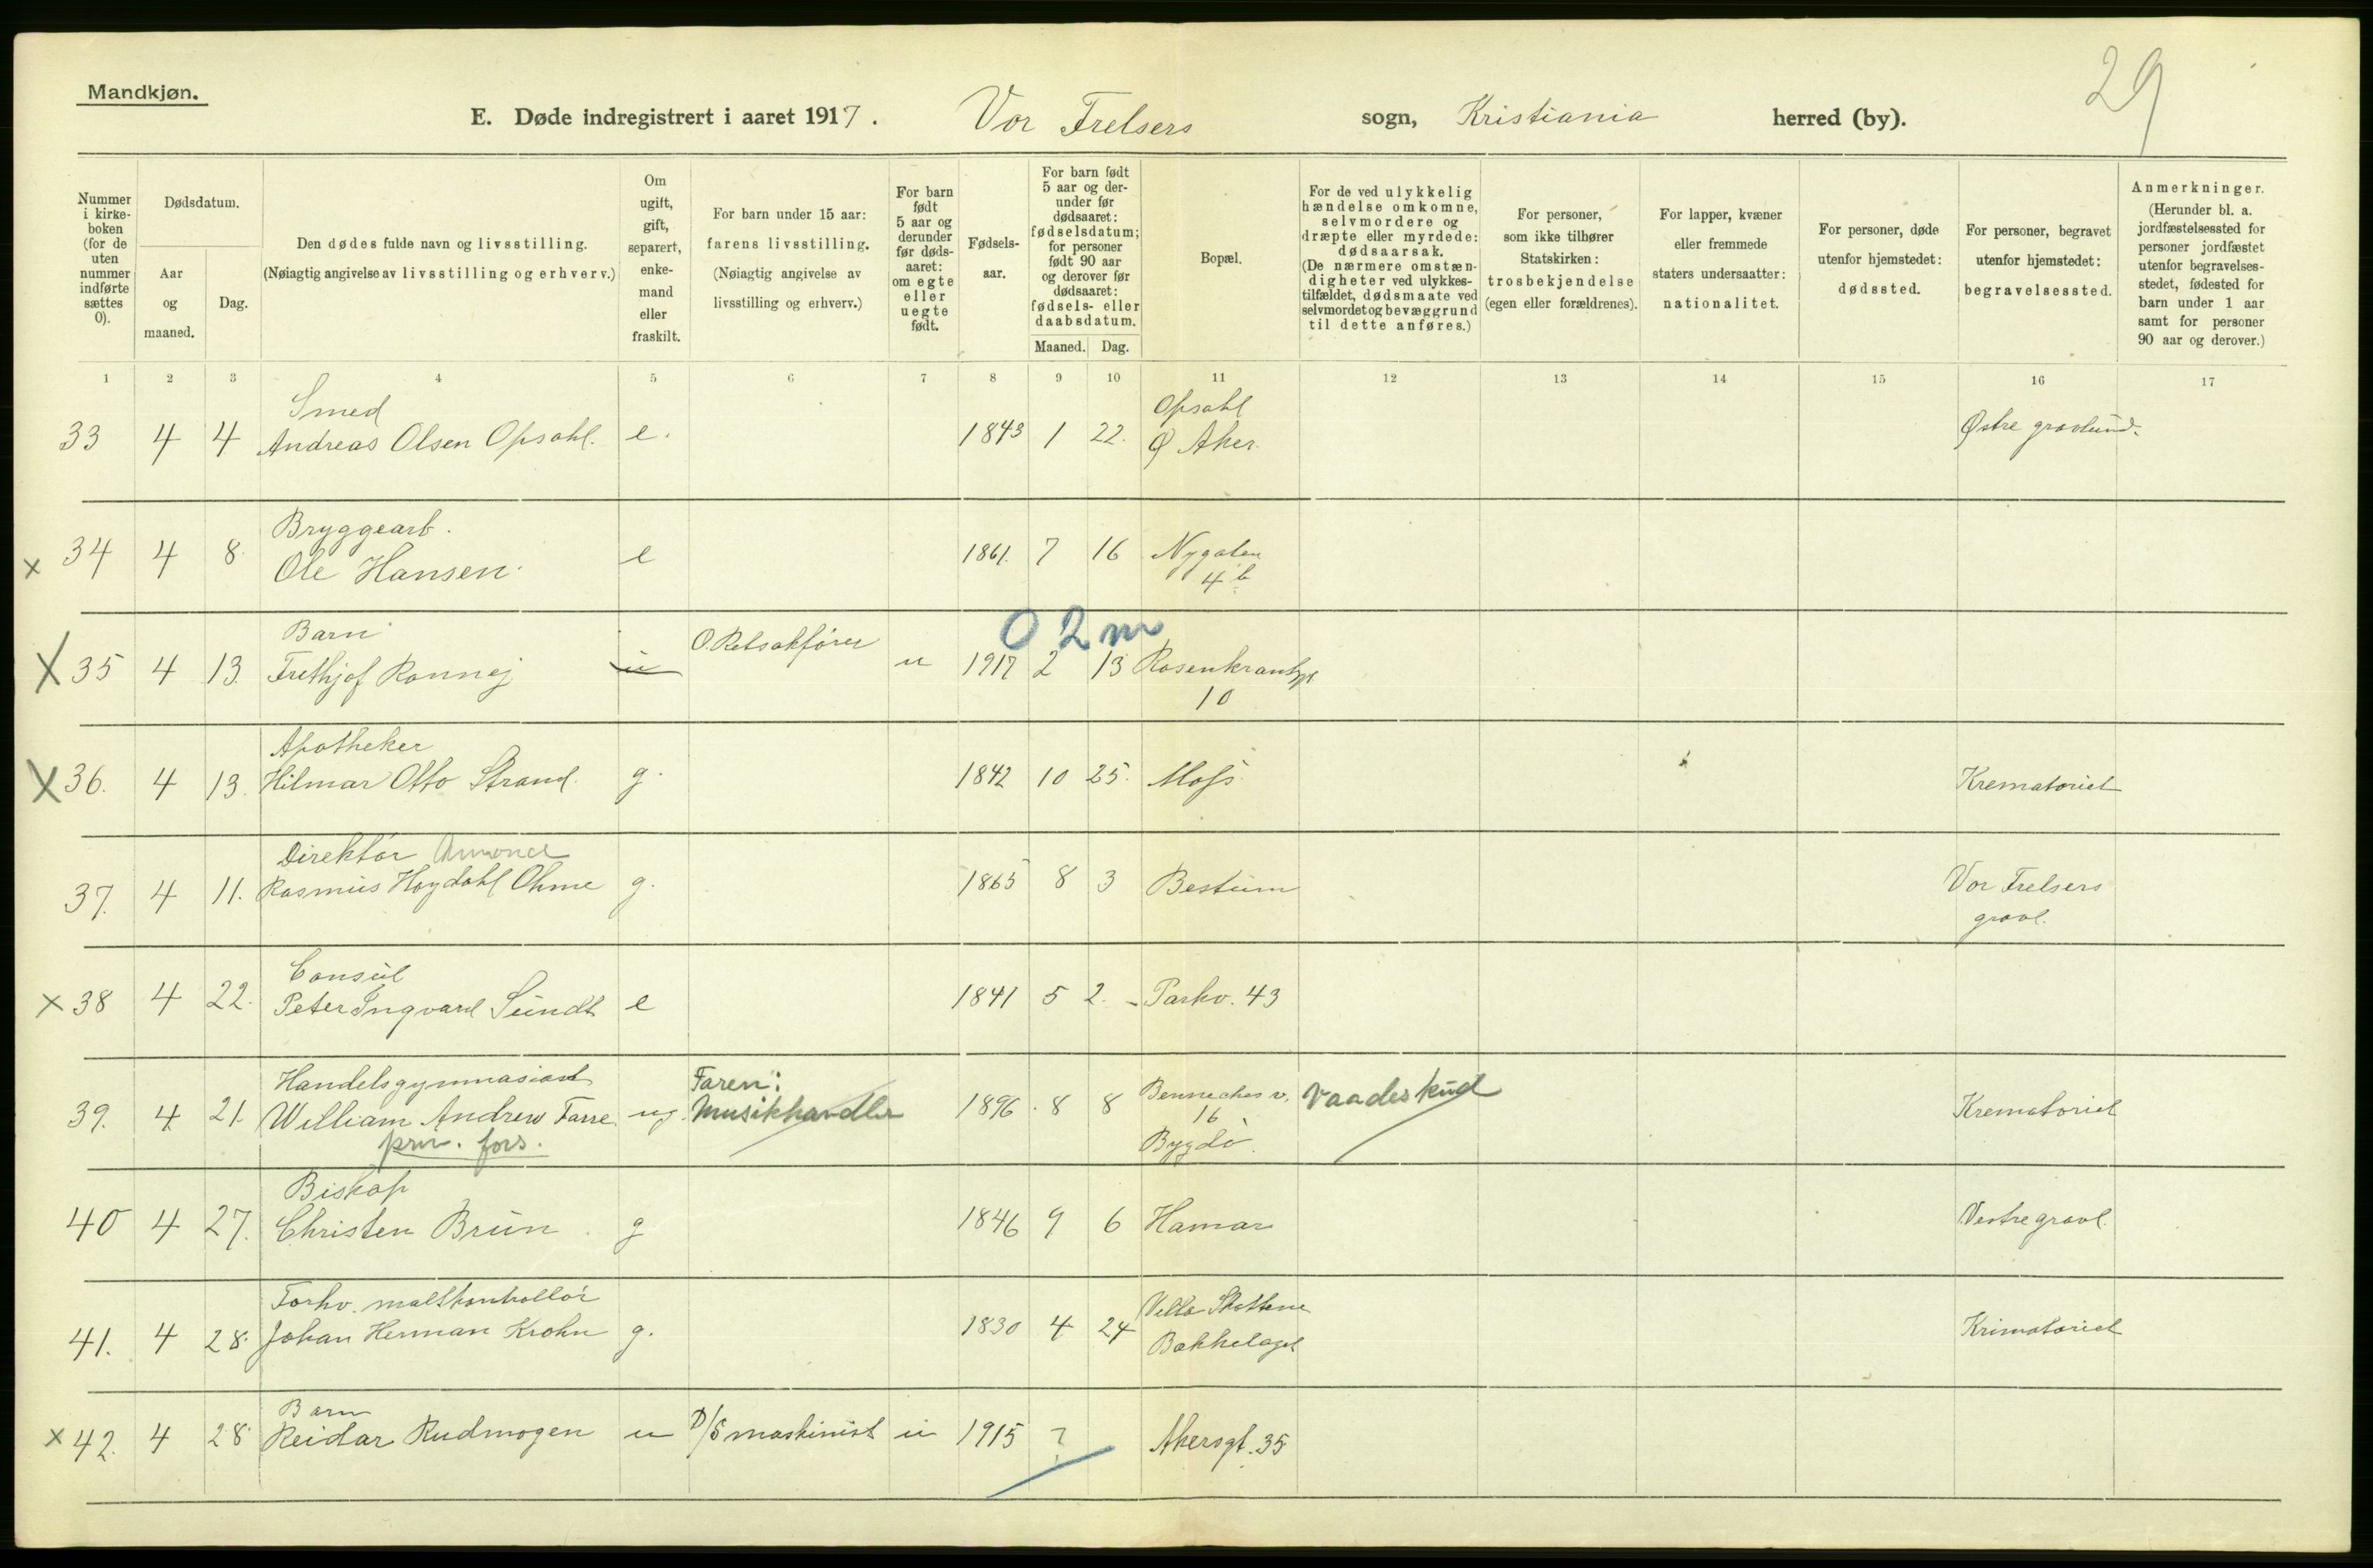 29
Mandkjøn.
E. Døde indregistrert i aaret 1917. Vor Frelsers sogn, Kristiania herred (by).
Nummer i kirke-boken (for de uten nummer indførte sættes 0).
Dødsdatum.
Aar og maaned.
Dag.
Den dødes fulde navn og livsstilling.
(Nøiagtig angivelse av livsstilling og erhverv.)
Om ugift, gift, separert, enke-mand eller fraskilt.
For barn under 15 aar: farens livsstilling.
(Nøiagtig angivelse av livsstilling og erhverv.)
For barn født 5 aar og derunder før døds-aaret: om egte eller uegte født.
Fødsels-aar.
For barn født 5 aar og der-under før dødsaaret: fødselsdatum; for personer født 90 aar og derover før dødsaaret: fødsels- eller daabsdatum.
Maaned. Dag.
Bopæl.
For de ved ulykkelig hændelse omkomne, selvmordere og dræpte eller myrdede: dødsaarsak.
(De nærmere omstæn-digheter ved ulykkes-tilfældet, dødsmaate ved selvmordet og bevæggrund til dette anføres.)
For personer, som ikke tilhører Statskirken: trosbekjendelse (egen eller forældrenes).
For lapper, kvæner eller fremmede staters undersaatter: nationalitet.
For personer, døde utenfor hjemstedet: dødssted.
For personer, begravet utenfor hjemstedet: begravelsessted.
Anmerkninger.
(Herunder bl. a. jordfæstelsessted for personer jordfæstet utenfor begravelses-stedet, fødested for barn under 1 aar samt for personer 90 aar og derover.)
1 2 3 4 5 6 7 8 9 10 11 12 13 14 15 16 17
Smed Opsahl
33 4 4 Andreas Olsen Opsahl. e. 1843 1 22. Ø Aker. Østre gravlund.
Bryggearb.
x 34 4 8. Ole Hansen. e 1861. 7 16 Nygaten
4 b
0 2 m
Barn O.Retsakfører
X 35 4 13. Frithjof Ronnej u u 1917 2 13 Rosenkrantzgt
10
Apotheker
X 36. 4 13. Hilmar Otto Strand. g. 1842 10 25. Moss Krematoriet
Direktør Annonce
37. 4 11. Rasmus Høydahl Ohme g. 1865 8 3 Bestum Vor Frelsers
gravl.
Consul
x 38 4 22. Peter Ingvard Sundt e 1841 5 2. Parkv. 43
Handelsgymnasiast Faren:
39. 4 21. William Andrew Farre. ug. Musikhandler 1896. 8 8 Benneches v. Vaadeskud Krematoriet
16
priv. fors. Bygdø.
Biskop
40 4 27. Christen Brun. g 1846 9 6 Hamar Vestre gravl.
Forhv. maltkontrollør Villa Skottene
41. 4 28. Johan Herman Krohn g. 1830 4 24 Bækkelaget Krimatoriet
Barn
x 42. 4 28. Reidar Rudmogen u D/S maskinist u 1915 ? Akersgt. 35